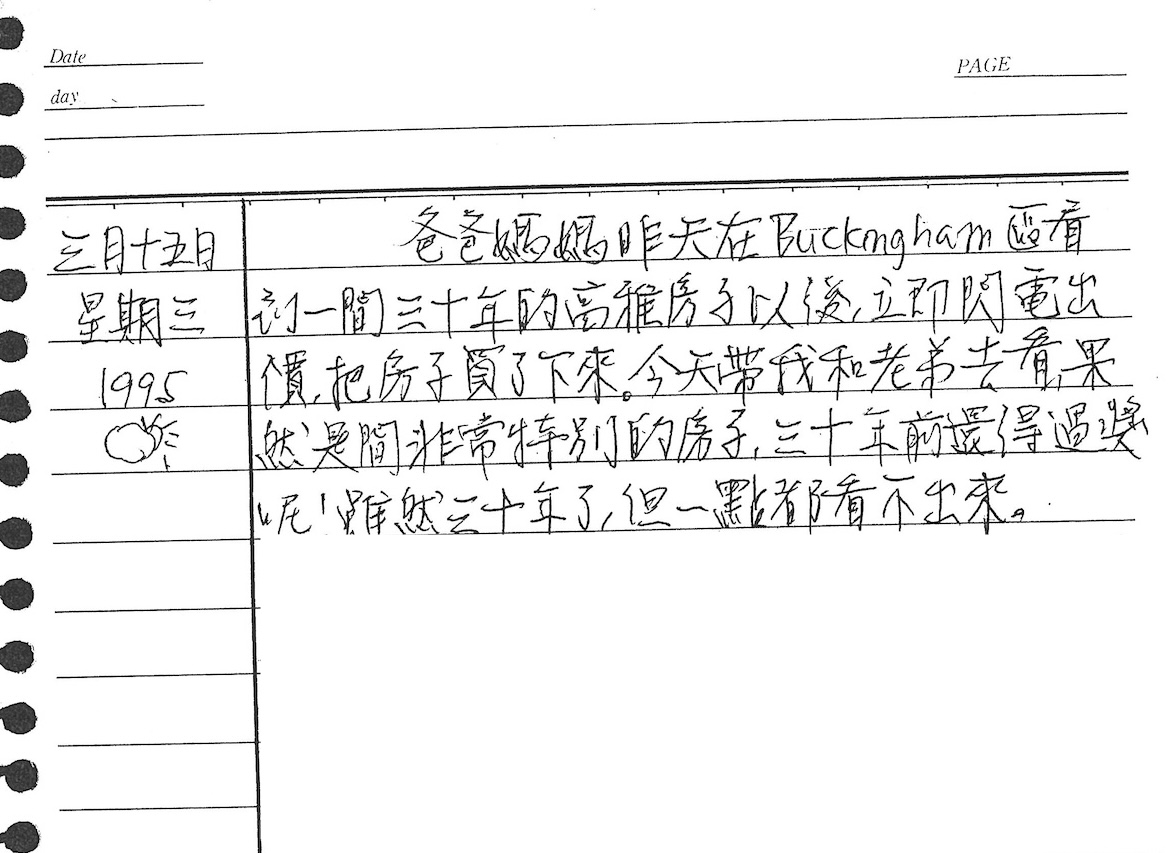 Date
PAGE
day
三月十五日
星期三
1995
爸爸媽媽昨天在Buckingham區看
到一間三十年的高雅房子以後,立即閃電出
價,把房子買了下來。今天帶我和老弟去看,果
然是間非常特別的房子,三十年前還得過獎
呢!雖然三十年了,但一點都看不出來。